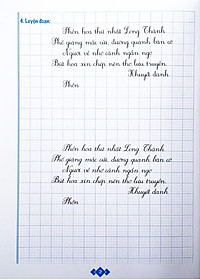 4. Luyện đoạn:
Phồn hoa thứ nhất Long Thành
Phố giăng mắc cửi, đường quanh bàn cờ
Người về nhớ cảnh ngẩn ngơ
Bút hoa xin chép nên thơ lưu truyền.
Khuyết danh
Phồn
Phồn hoa thứ nhất Long Thành
Phố giăng mắc cửi, đường quanh bàn cờ
Người về nhớ cảnh ngẩn ngơ
Bút hoa xin chép nên thơ lưu truyền.
Khuyết danh
Phồn